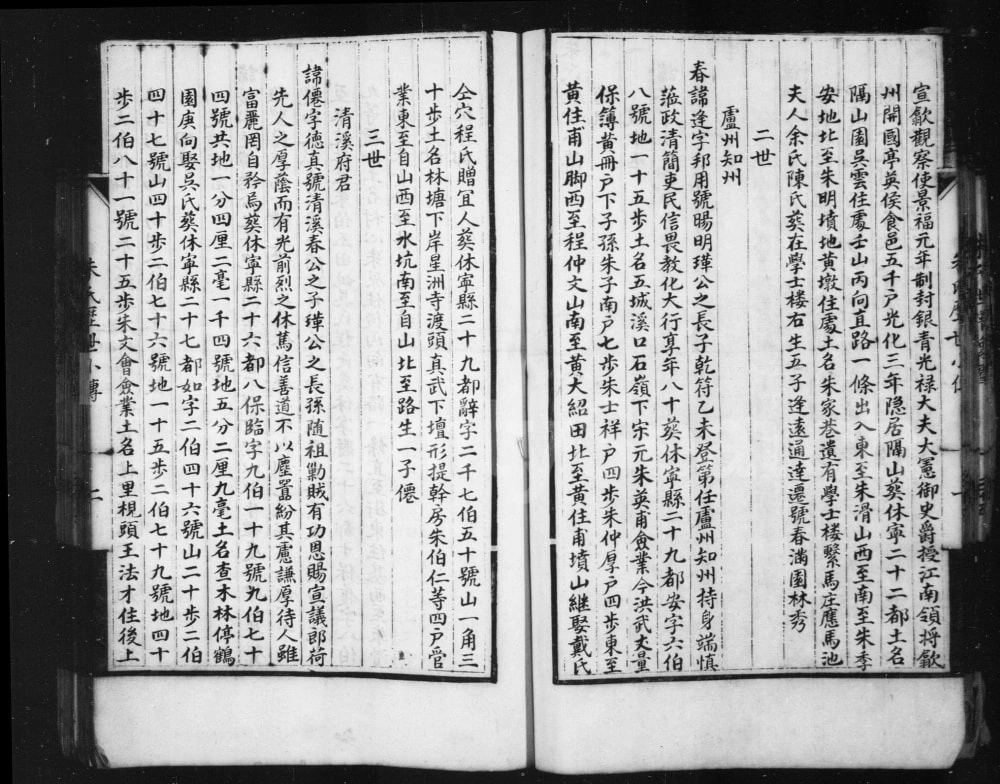 宣歙觀察使景福元年制封銀青光禄大夫大憲御史爵授江南領將歙
州開國亭英侯食邑五千戸光化三年隐居隔山葵休寧二十二都土名
隔山園吳雲住處壬山丙向直路一條出入東至朱滑山西至南至朱季
安地北至朱明墳地黄墩住處土名朱家巷遺有學士楼繫馬庄應馬池
夫人余氏陳氏葵在學士楼右生五子逢遠通達遷號春滿園林秀
二世
盧州知州
春諱逢字邦用號暘明瑾公之長子乾符乙未登第任盧州知州持身端慎
蒞政清簡吏民信畏教化大行享年八十葵休寧縣二十九都安字六伯
八號地一十五歩土名五城溪口石嶺下宋元朱英甫僉業今洪武丈量
保簿黄冊戸下子孫朱子南戸七歩朱士祥戸四歩朱仲厚戸四歩東至
黄住甫山脚西至程仲文山南至黄大紹田北至黄住甫墳山継娶戴氏
仝穴程氏贈宜人葵休寧縣二十九都辭字二千七伯五十號山一角三
十歩土名林塘下岸星洲寺渡頭真武下壇形提幹房朱伯仁等四戸管
業東至自山西至水坑南至自山北至路生一子僊
三世
清溪府君
諱僊字德真號清溪春公之子瑾公之長孫随祖勦賊有功恩賜宣議郎荷
先人之厚蔭而有光前烈之休篤信善道不以塵囂紛其慮謙厚待人雖
富麗罔自矜焉葵休寧縣二十六都八保臨字九伯一十九號九伯七十
四號共地一分四厘二毫一千四號地五分二厘九毫土名查木林停鶴
園庚向娶吳氏葵休寧縣二十七都如字二伯四十六號山二十歩二伯
四十七號山四十歩二伯七十六號地一十五歩二伯七十九號地四十
歩二伯八十一號二十五歩朱文會僉業土名上里梘頭王法才住後上